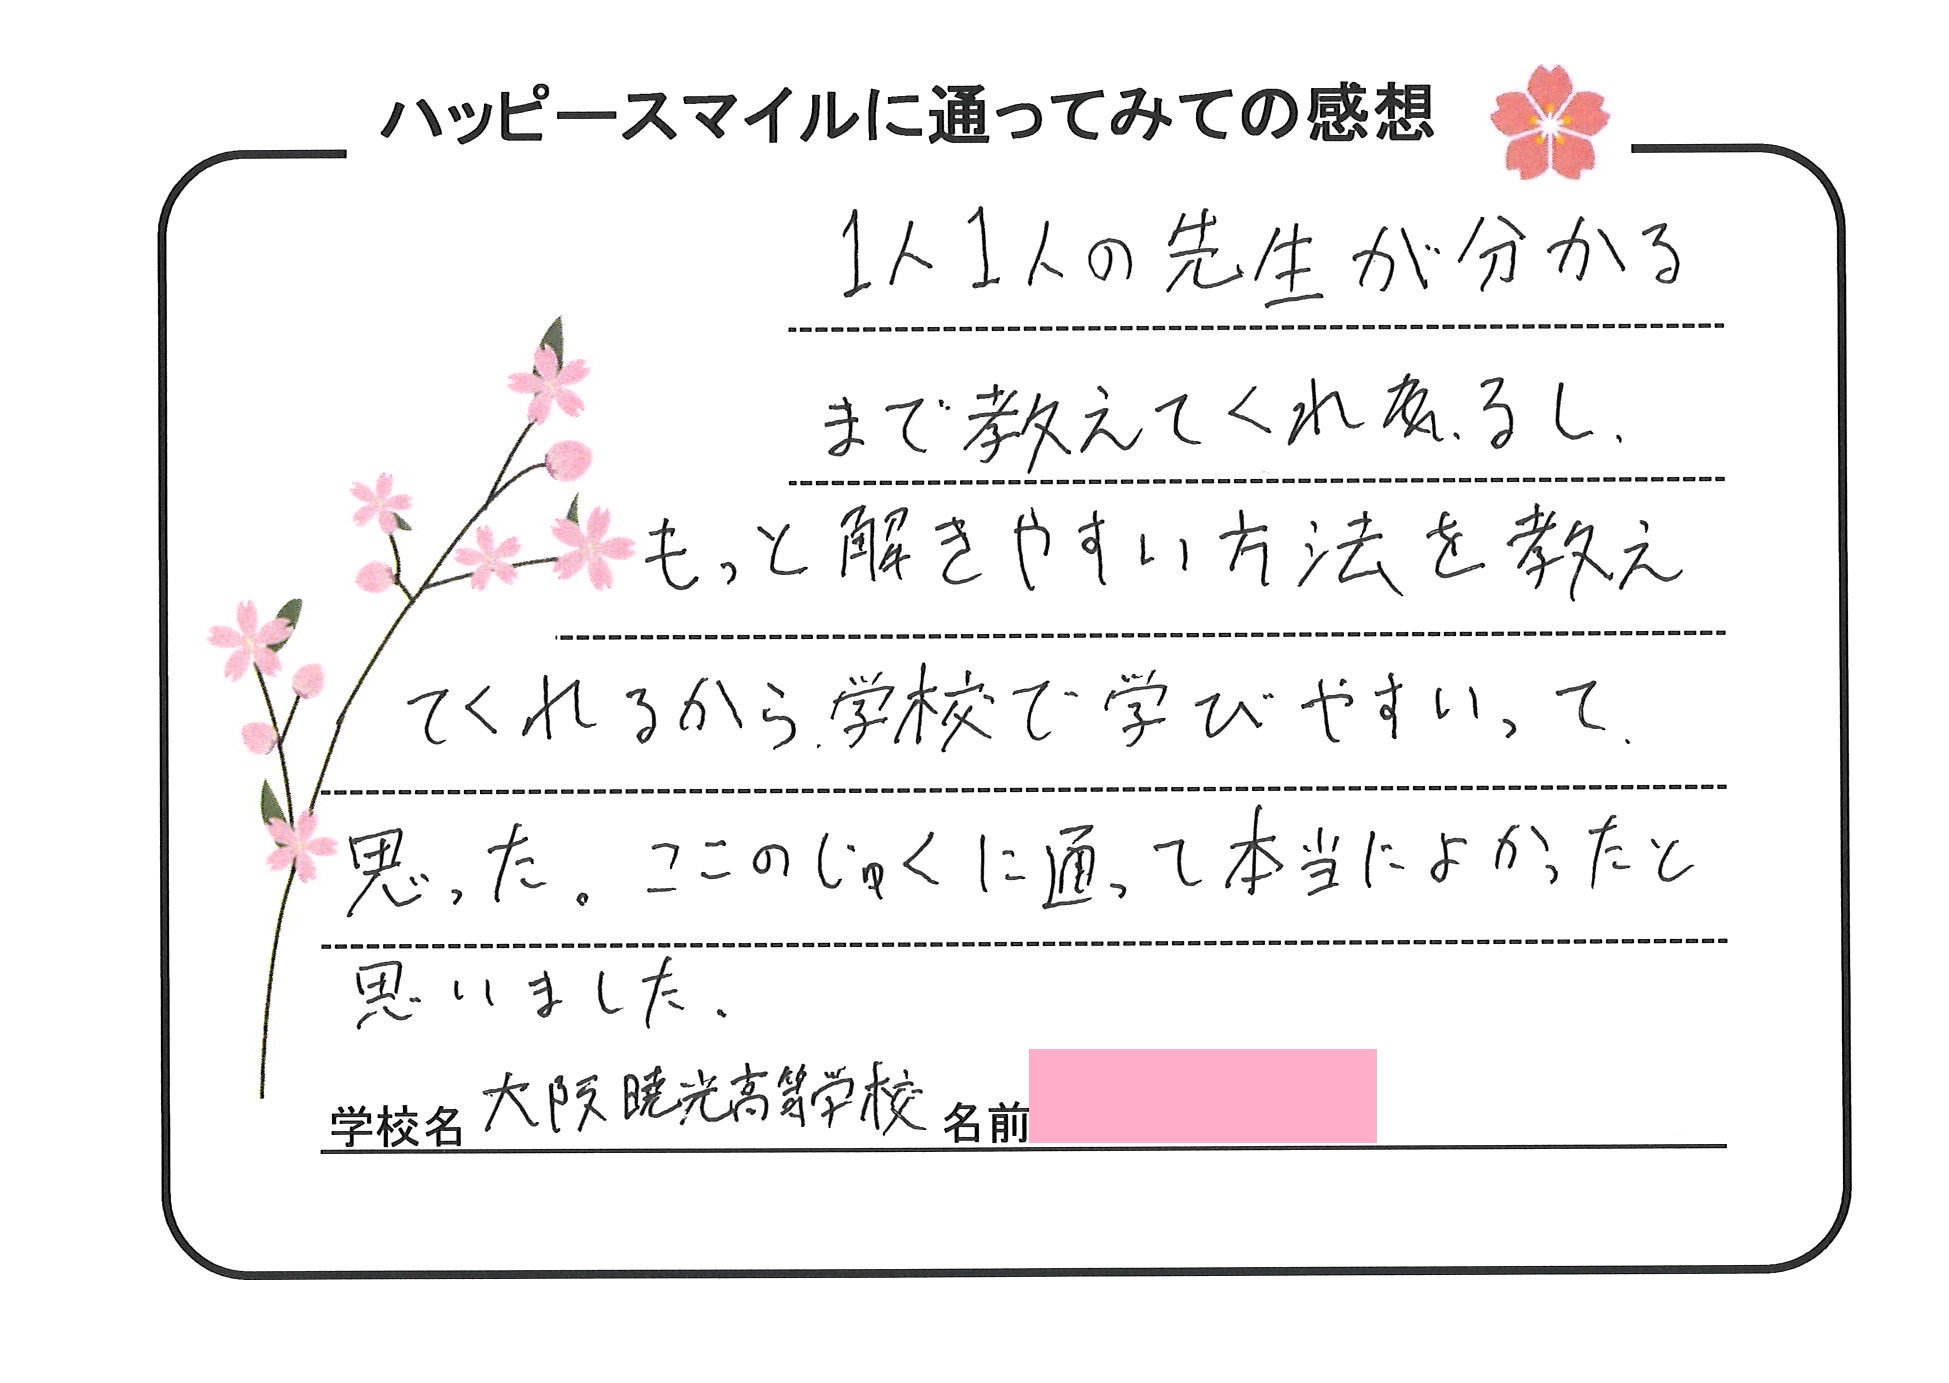 ハッピースマイルに通ってみての感想
1人1人の先生が分かる
まで教えてくれるし、
もっと解きやすい方法を教え
てくれるから、学校で学びやすいって、
思った。ここのじゅくに通って本当によかったと
思いました。
学校名 大阪暁光高等学校 名前